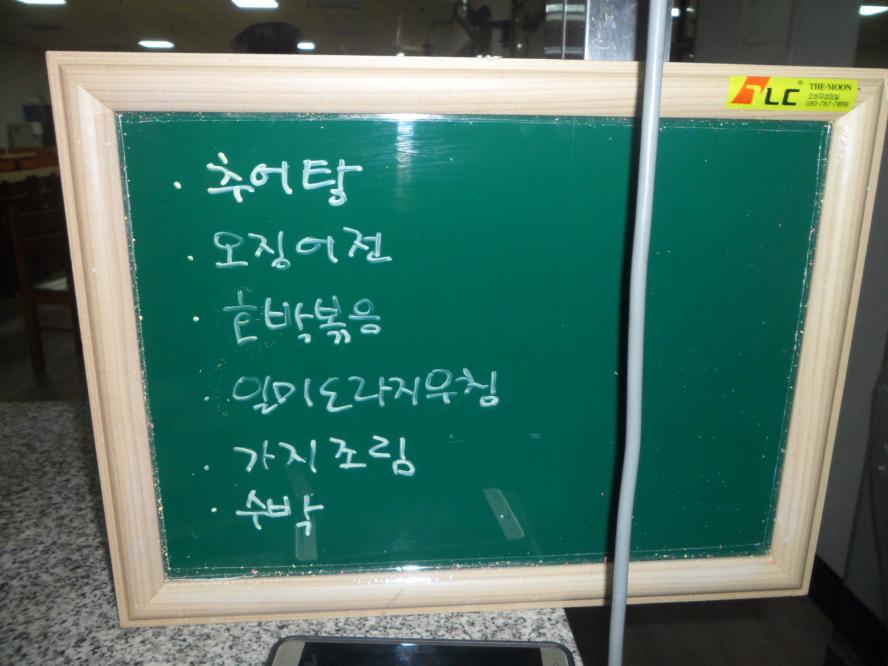 TLC THE-MOON
소비자상담실
080-767-7879
· 추어탕
· 오징어전
· 호박볶음
· 일미도라지무침
· 가지조림
· 수박